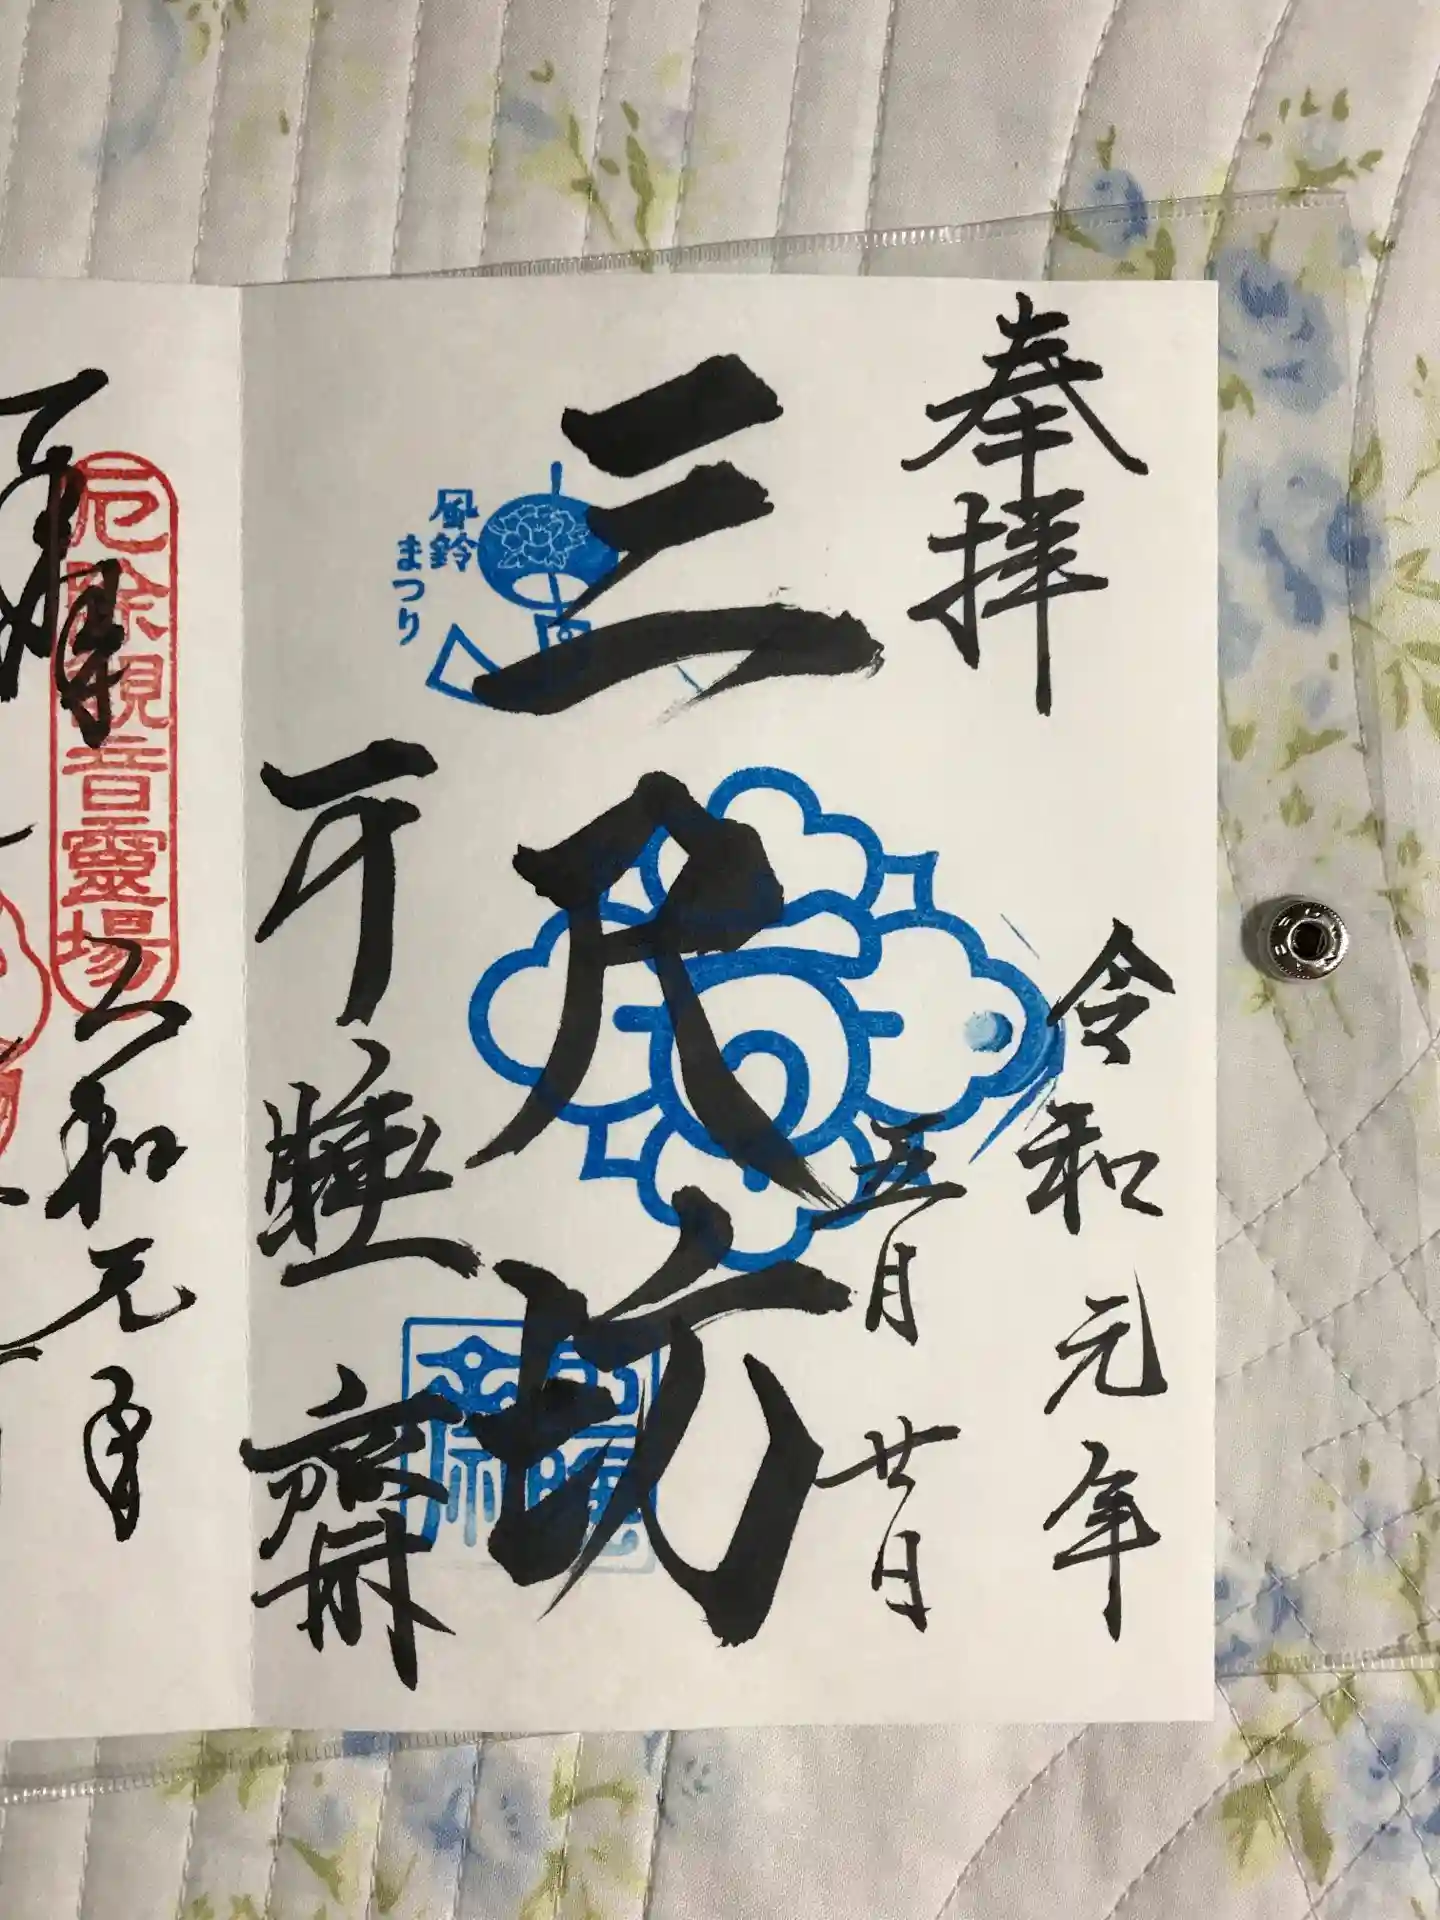 奉拝
令和元年
五月廿日
三尺坊
可睡齋
風鈴
まつり
厄除観音霊場
拝
令和元年